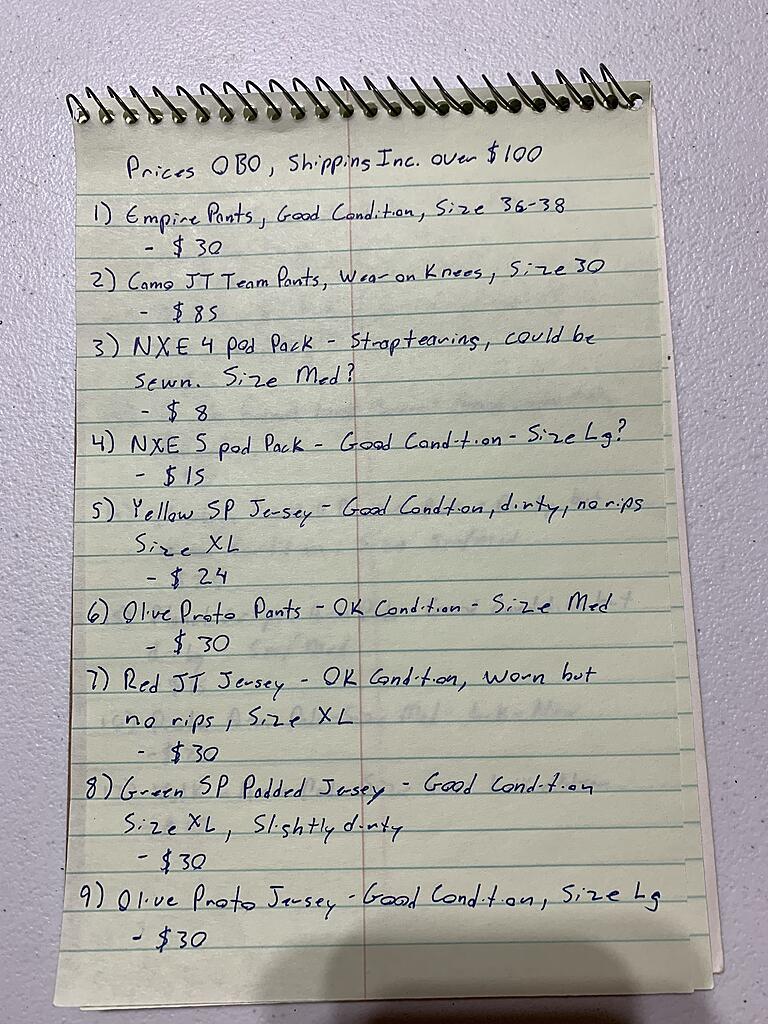 Prices OBO, Shipping Inc. over $100
1) Empire Pants, Good Condition, Size 36-38
- $30
2) Camo JT Team Pants, Wear on Knees, Size 30
- $85
3) NXE 4 pod Pack - Strap tearing, could be
sewn. Size Med?
- $8
4) NXE 5 pod Pack - Good Condition - Size Lg?
- $15
5) Yellow SP Jersey - Good Condtion, dirty, no rips
Size XL
- $24
6) Olive Proto Pants - OK Condition - Size Med
- $30
7) Red JT Jersey - OK Condition, worn but
no rips, Size XL
- $30
8) Green SP Padded Jersey - Good Condition
Size XL, Slightly dirty
- $30
9) Olive Proto Jersey - Good Condition, Size Lg
- $30